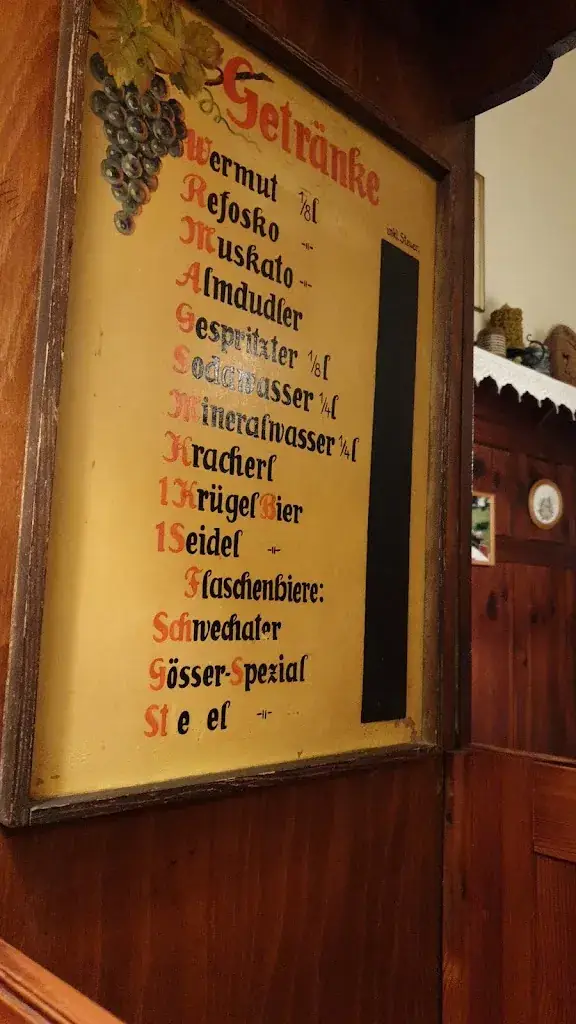 Getränke
inkl. Steuern
Wermut 1/8l
Refosko -"-
Muskato -"-
Almdudler
Gespritzter 1/8l
Sodawasser 1/4l
Mineralwasser 1/4l
Kracherl
1 Krügel Bier
1 Seidel -"-
Flaschenbiere:
Schwechater
Gösser-Spezial
St e el -"-